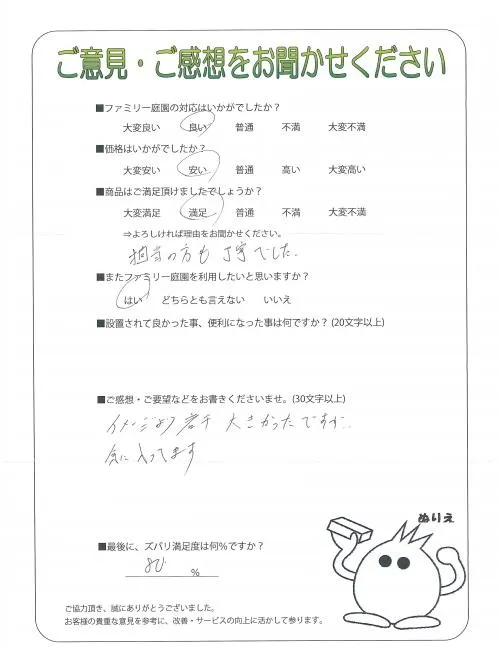 ご意見・ご感想をお聞かせください
■ファミリー庭園の対応はいかがでしたか？
大変良い 良い 普通 不満 大変不満
■価格はいかがでしたか？
大変安い 安い 普通 高い 大変高い
■商品はご満足頂けましたでしょうか？
大変満足 満足 普通 不満 大変不満
⇒よろしければ理由をお聞かせください。
担当の方も丁寧でした。
■またファミリー庭園を利用したいと思いますか？
はい どちらとも言えない いいえ
■設置されて良かった事、便利になった事は何ですか？(20文字以上)
■ご感想・ご要望などをお書きくださいませ。(30文字以上)
イメージより若干 大きかったですが、
気に入ってます
ぬりえ
■最後に、ズバリ満足度は何％ですか？
80 %
ご協力頂き、誠にありがとうございました。
お客様の貴重な意見を参考に、改善・サービスの向上に活かして参ります。